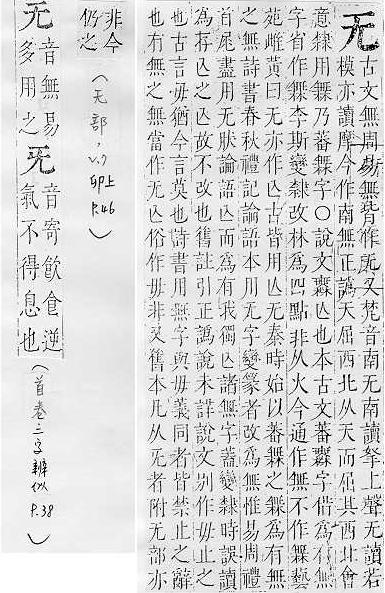 无
古文無周易無皆作无又梵音南无南讀拏上聲无讀若
模亦讀摩今作南無正譌天屈西北从天而屈其西北會
意隸用橆乃蕃橆字〇說文橆亾也本古文蕃橆字借爲有無
字省作橆李斯變隸改林爲四點非从火今通作無不作橆藝
苑雌黄曰无亦作亾古皆用亾无秦時始以蕃橆之橆爲有無
之無詩書春秋禮記論語本用无字變篆者改爲無惟易周禮
首尾盡用无肰論語亾而爲有我獨亾諸無字葢變隸時誤讀
爲存亾之亾故不改也舊註引正譌說未詳說文別作毋止之
也古言毋猶今言莫也詩書用無字與毋義同者皆禁止之辭
也有無之無當作无亾俗作毋非又舊本凡从旡者附无部亦
非今
仍之
(无部, v.7 卯上 P.46)
无
音無易
多用之
旡
音寄飮食逆
氣不得息也
(首卷二字辨似 P.38)